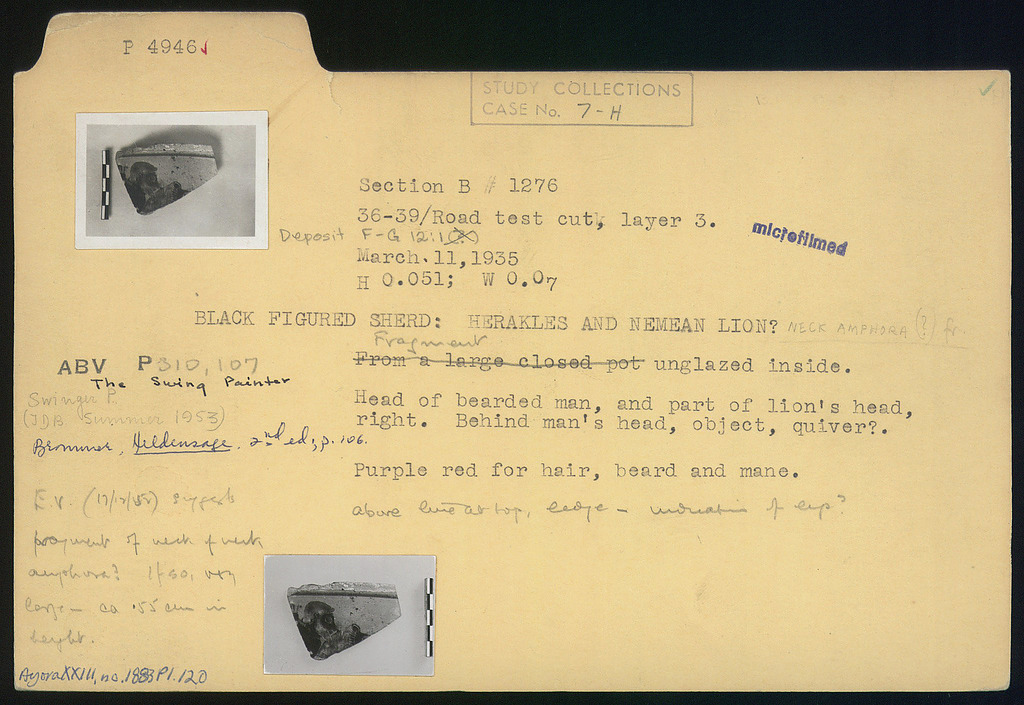 P 4946
STUDY COLLECTIONS
CASE No. 7-H
Section B # 1276
36-39/Road test cut, layer 3.
Deposit F-G 12:1 (?)
microfilmed
March.11,1935
H 0.051; W 0.07
BLACK FIGURED SHERD: HERAKLES AND NEMEAN LION? NECK AMPHORA (?) fr.
Fragment
From a large closed pot unglazed inside.
ABV P310,107
The Swing Painter
Swinger P.
(JDB Summer 1953)
Brommer, Heldensage. 2nd ed; p. 106.
Head of bearded man, and part of lion's head,
right. Behind man's head, object, quiver?.
Purple red for hair, beard and mane.
above line at top, ledge - indication of lip?
E.V. suggests
fragment of neck of neck
amphora? If so, very
large - ca .55 cm in
height.
Agora XXIII, no. 188 Pl. 120